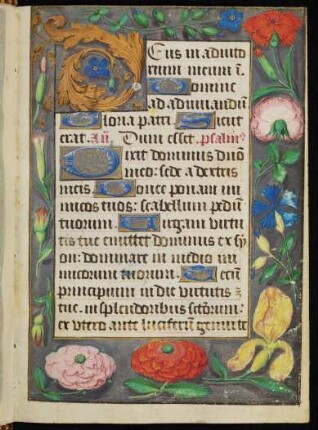 Deus in adiuto
rium meum i.
Domine
ad adiuvandū
Gloria patri Sicut
erat. Añ. Dum esset. psalm⁹
Dixit dominus dn̄o
meo: sede a dextris
meis Donec ponam ini
micos tuos: scabellum pedū
tuorum. Virgam virtu
tis tue emittet dominus ex sy
on: dominare in medio ini
micorum tuorum. Tecū
principium in die virtutis
tue. in splendoribus sctōrum:
ex utero ante luciferū genui te